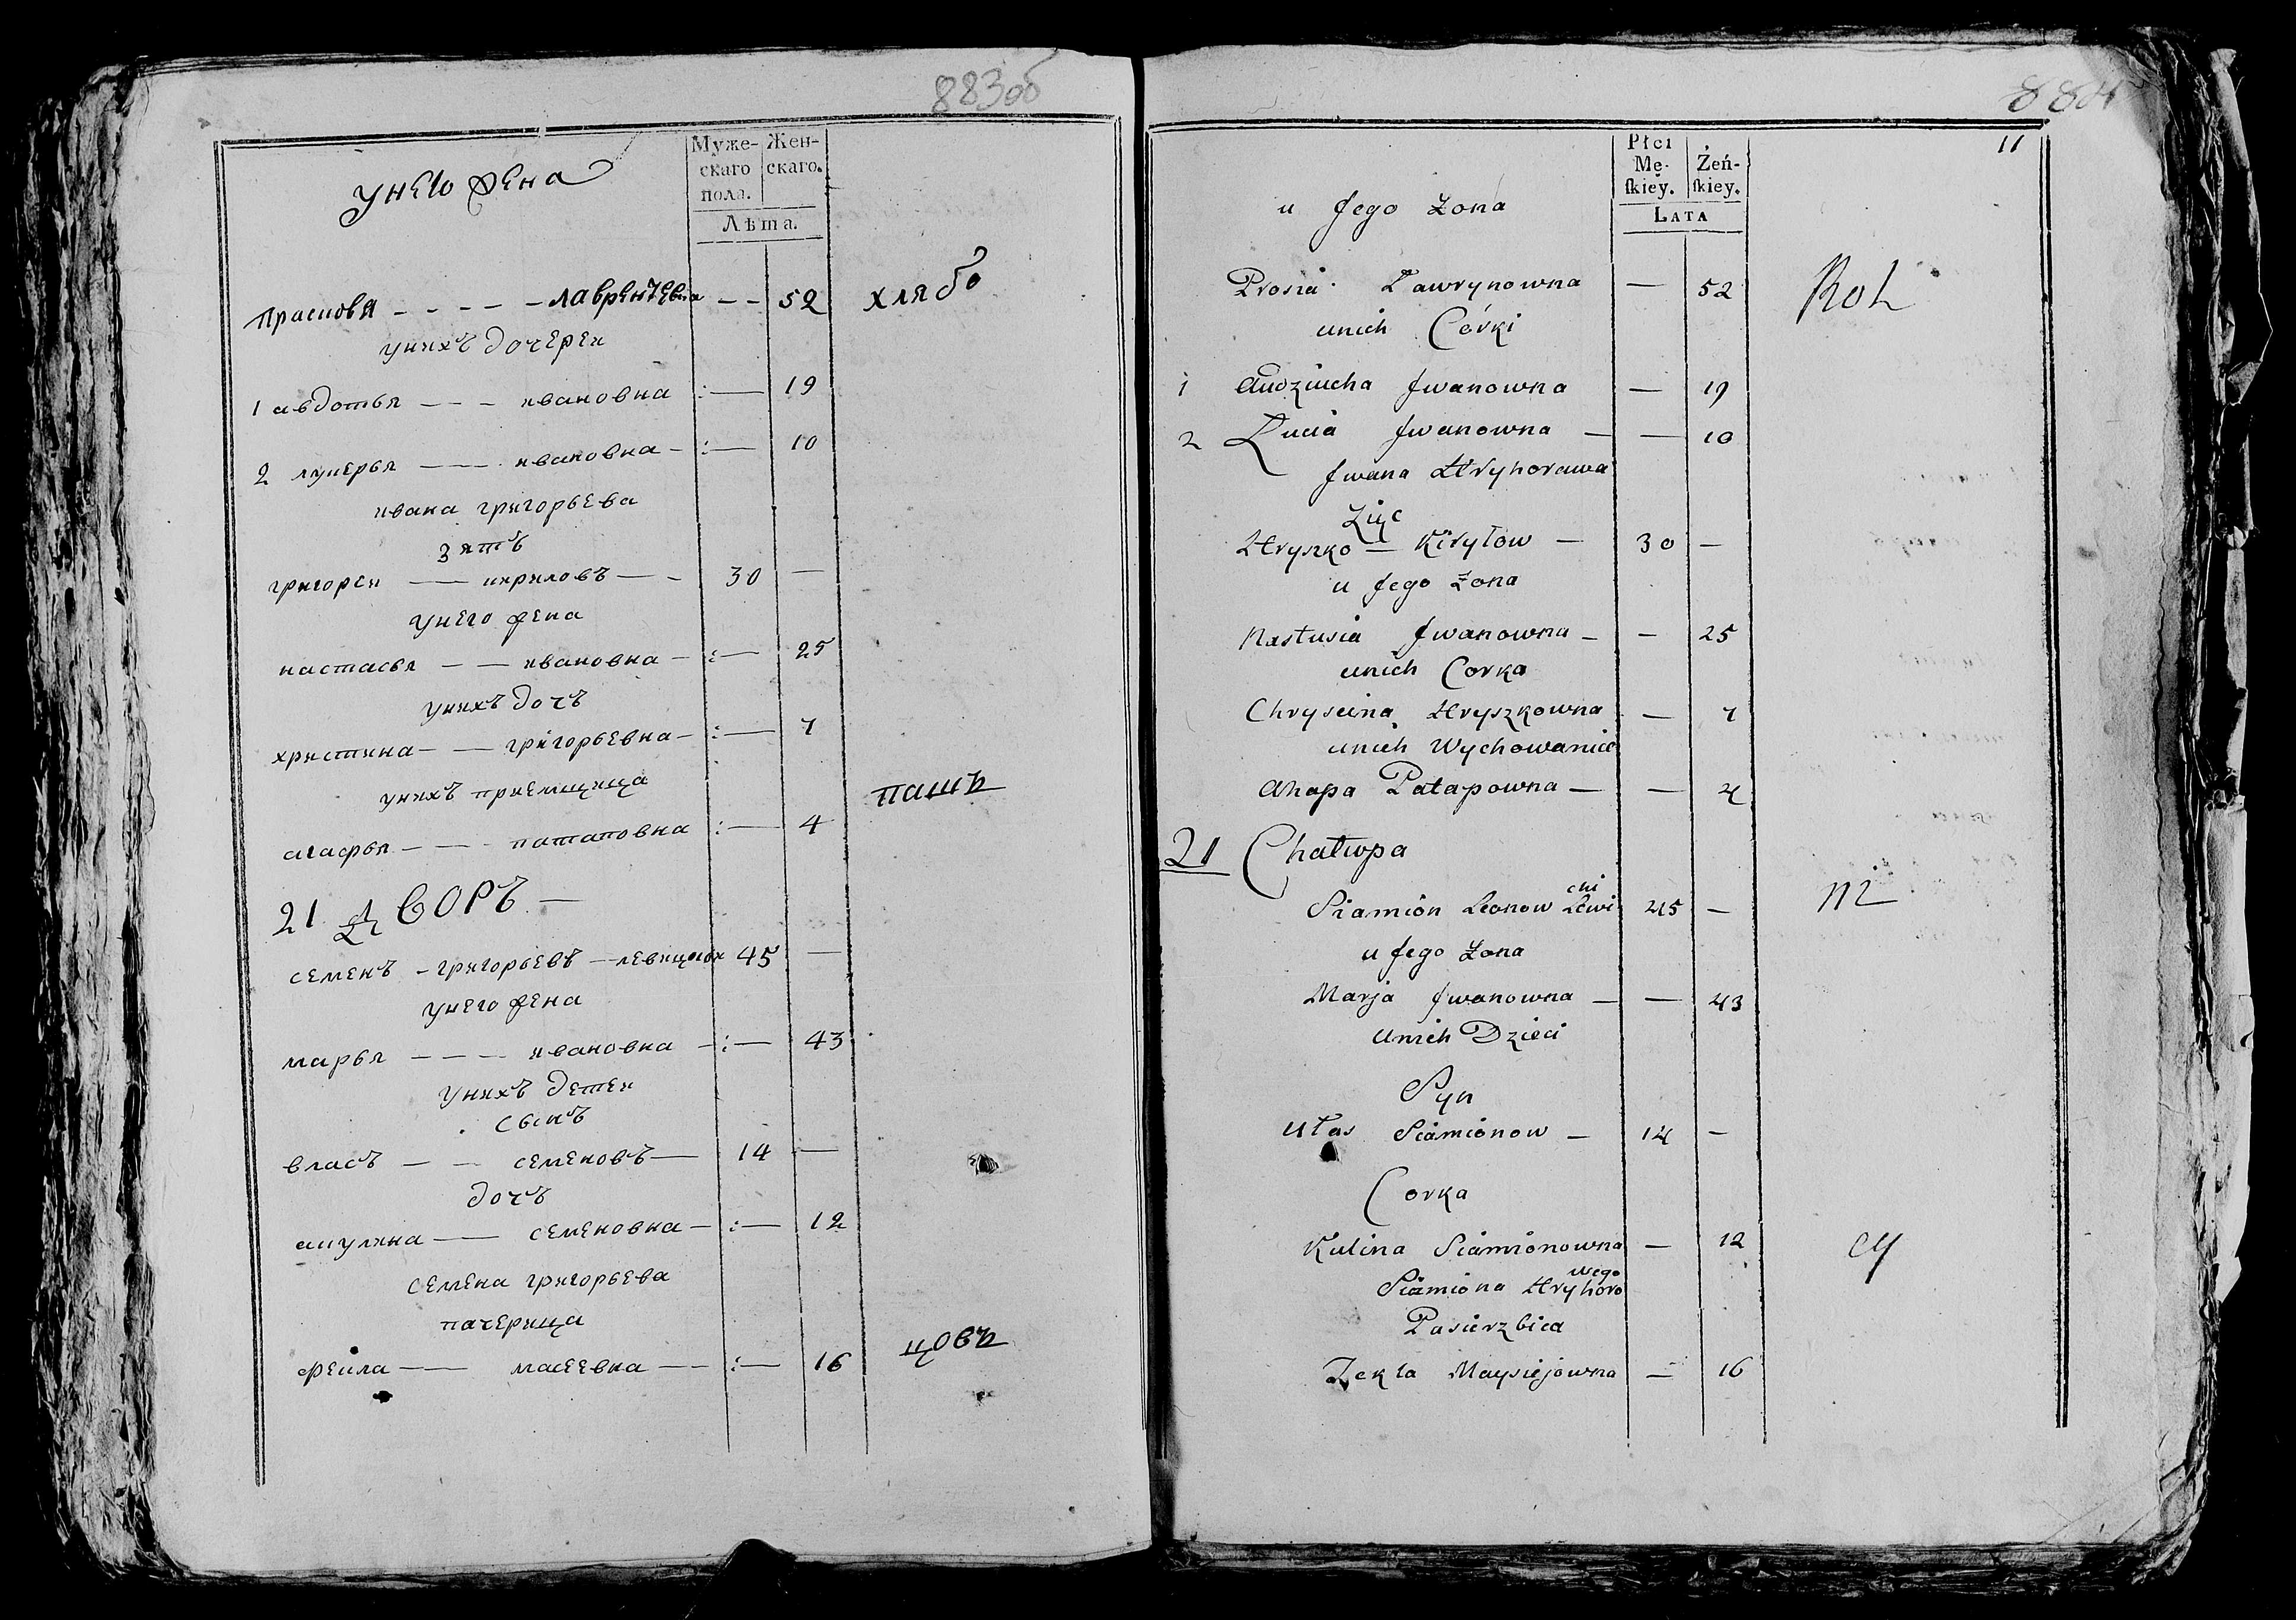 883об
Муже-
скаго
пола.
Жен-
скаго.
Лѣта.
унего жена
прасковя - - - - - лаврентевна - - 52 хлябо
унихъ дочереи
1 авдотья - - - ивановна : — 19
2 лукерья — - ивановна - : — 10
ивана григорьева
зятъ
григореи — кириловъ — - 30 —
унего жена
настасья - — ивановна - : — 25
унихъ дочъ
христина - — григорьевна - : — 7
унихъ приемщица
пашъ
агафья - — - патаповна : — 4
21 дворъ —
семенъ - григорьевъ — левицкои 45 —
унего жена
марья - - - - ивановна - : — 43
унихъ детеи
сынъ
власъ - - семеновъ — 14 —
дочъ
акулина — семеновна - : — 12
семена григорьева
пачерица
цовъ
фекла — масеевна — - : — 16
884
11
Płci
Mę-
ſkiey.
Żeń-
ſkiey.
LATA
u Jego Zona
Prosia Lawrynowna — 52 Roh
unich Córki
1 Audziucha Jwanowna — 19
2 Lucia Jwanowna — — 10
Jwana Hryhorawa
Zięc
Hryszko — Kiryłow — 30 —
u Jego Zona
Nastusia Jwanowna - - 25
unich Corka
Chryscina Hryszkowna — 7
unich Wychowanica
Ahapa Patapowna — — 4
21 Chałupa
chi
Siamion Leonow Lewi 45 — ni
u Jego Zona
Marja Jwanowna — — 43
Unich Dzieci
Syn
Ułas Siamionow — 14 —
Corka
Kulina Siamionowna — 12 cy
wego
Siamiona Hryhoro
Pasierzbica
Tekla Maysiejowna — 16